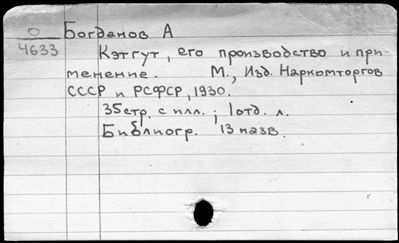 О Богданов А
4633 Кэтгут, его производство и при
менение. М., Изд. Наркомторгов
СССР и РСФСР, 1930.
35 стр. с илл.; 1 отд. л.
Библиогр. 13 назв.